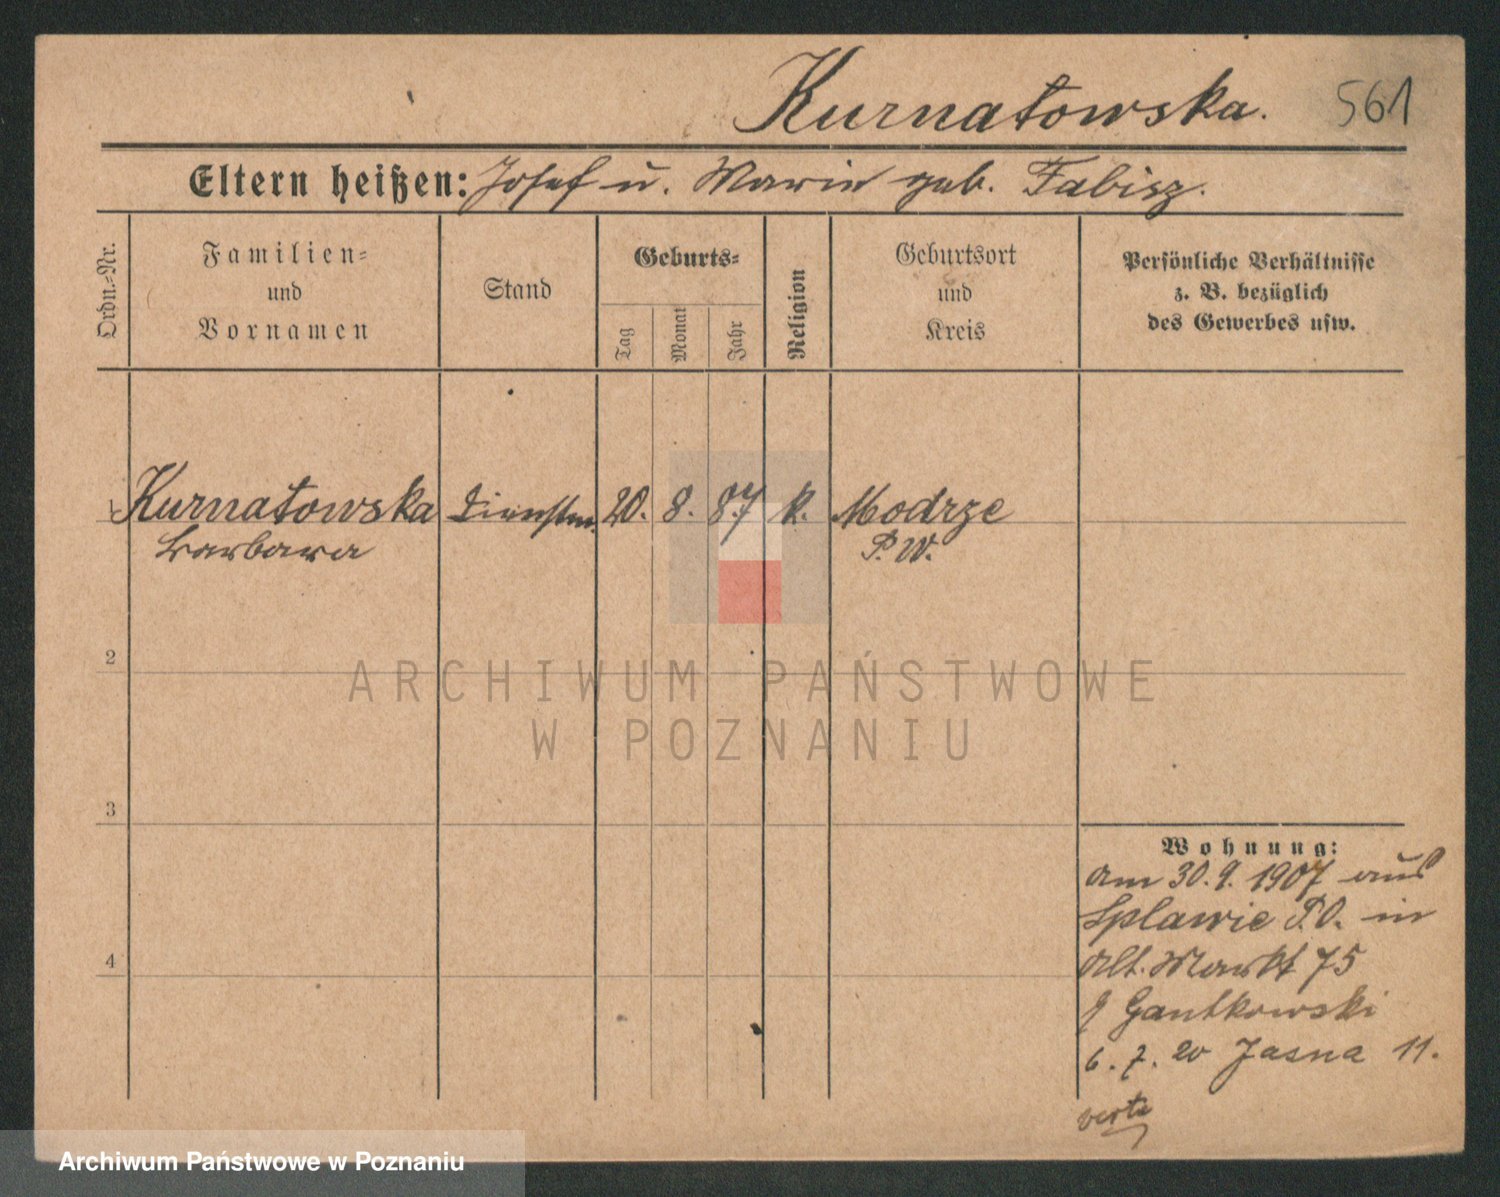 Kurnatowska. 561
Eltern heißen: Josef u. Marie geb. Fabisz.
Ordn.-Nr.
Familien-
und
Vornamen
Stand
Geburts-
Tag
Monat
Jahr
Religion
Geburtsort
und
Kreis
Persönliche Verhältnisse
z. B. bezüglich
des Gewerbes usw.
1 Kurnatowska Dienstm. 20. 8. 87 k. Modrze
Barbara P. W.
2
3
4
Wohnung:
am 30. 9. 1907 aus
Splawie P. O. in
Alt. Markt 75
Gantkowski
6. 7. 20 Jasna 11.
verte
ARCHIWUM PAŃSTWOWE
W POZNANIU
Archiwum Państwowe w Poznaniu